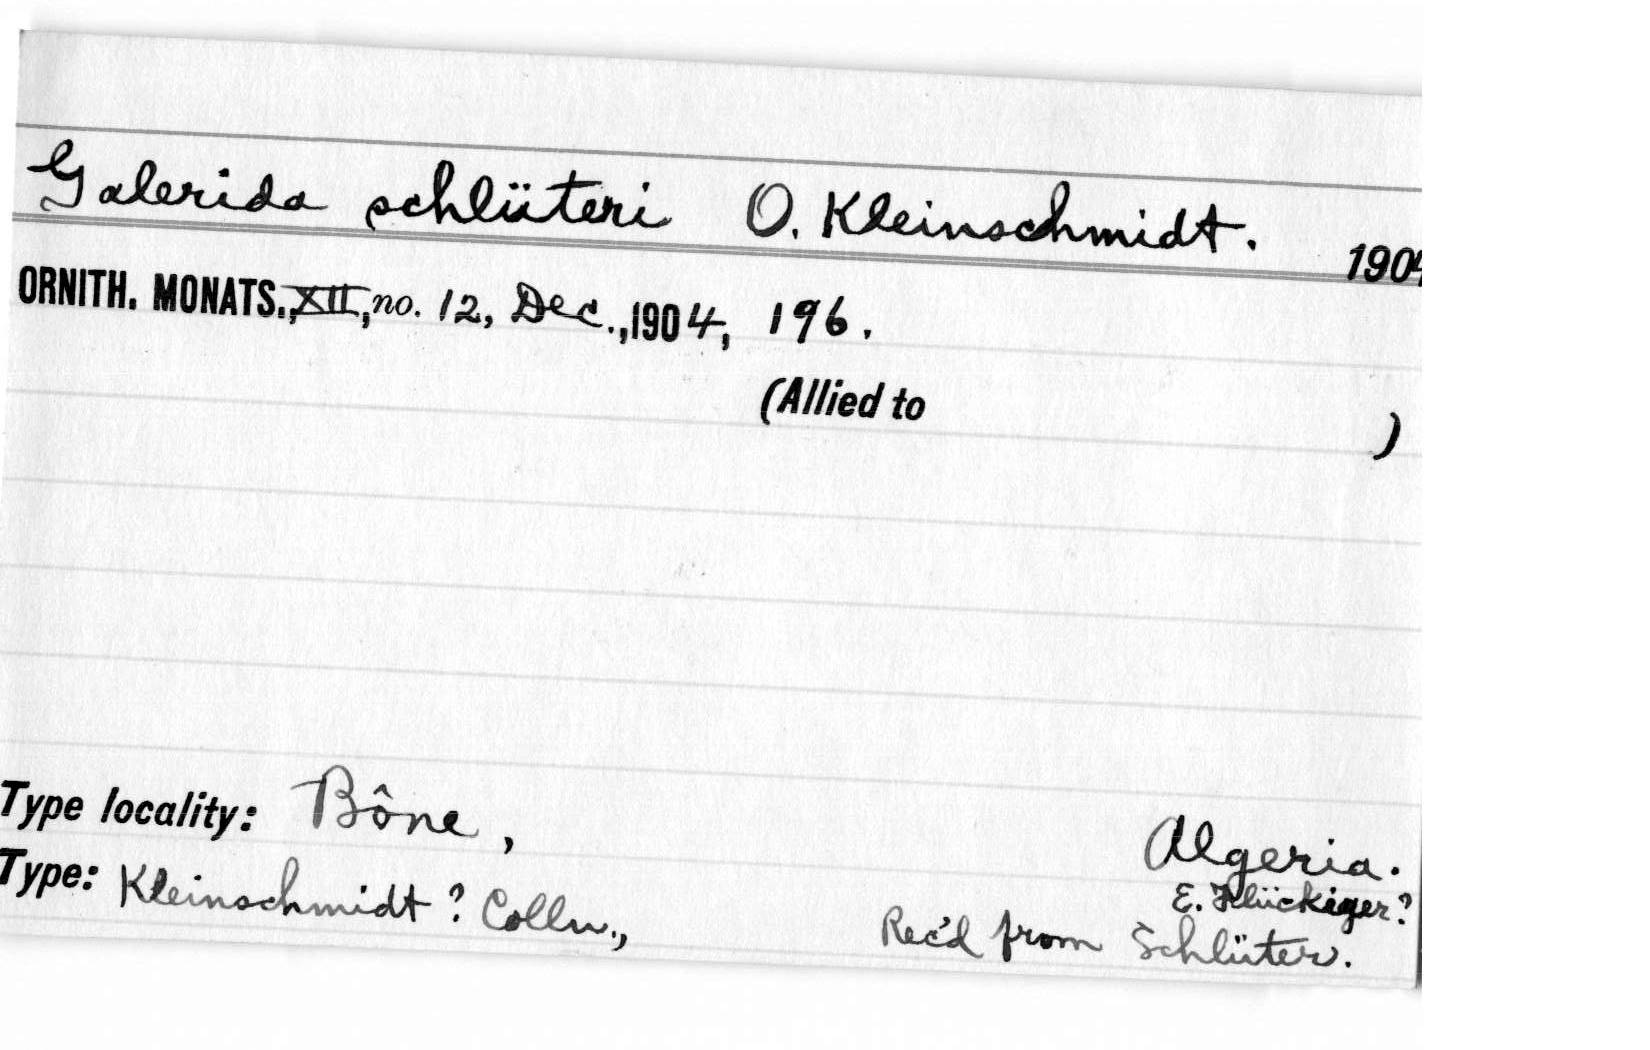 Galerida schlüteri O. Kleinschmidt. 1904
ORNITH. MONATS., XII, no. 12, Dec., 1904, 196.
(Allied to )
Type locality: Bône, Algeria.
E. Flückiger?
Type: Kleinschmidt? Colln., Rec'd from Schlüter.